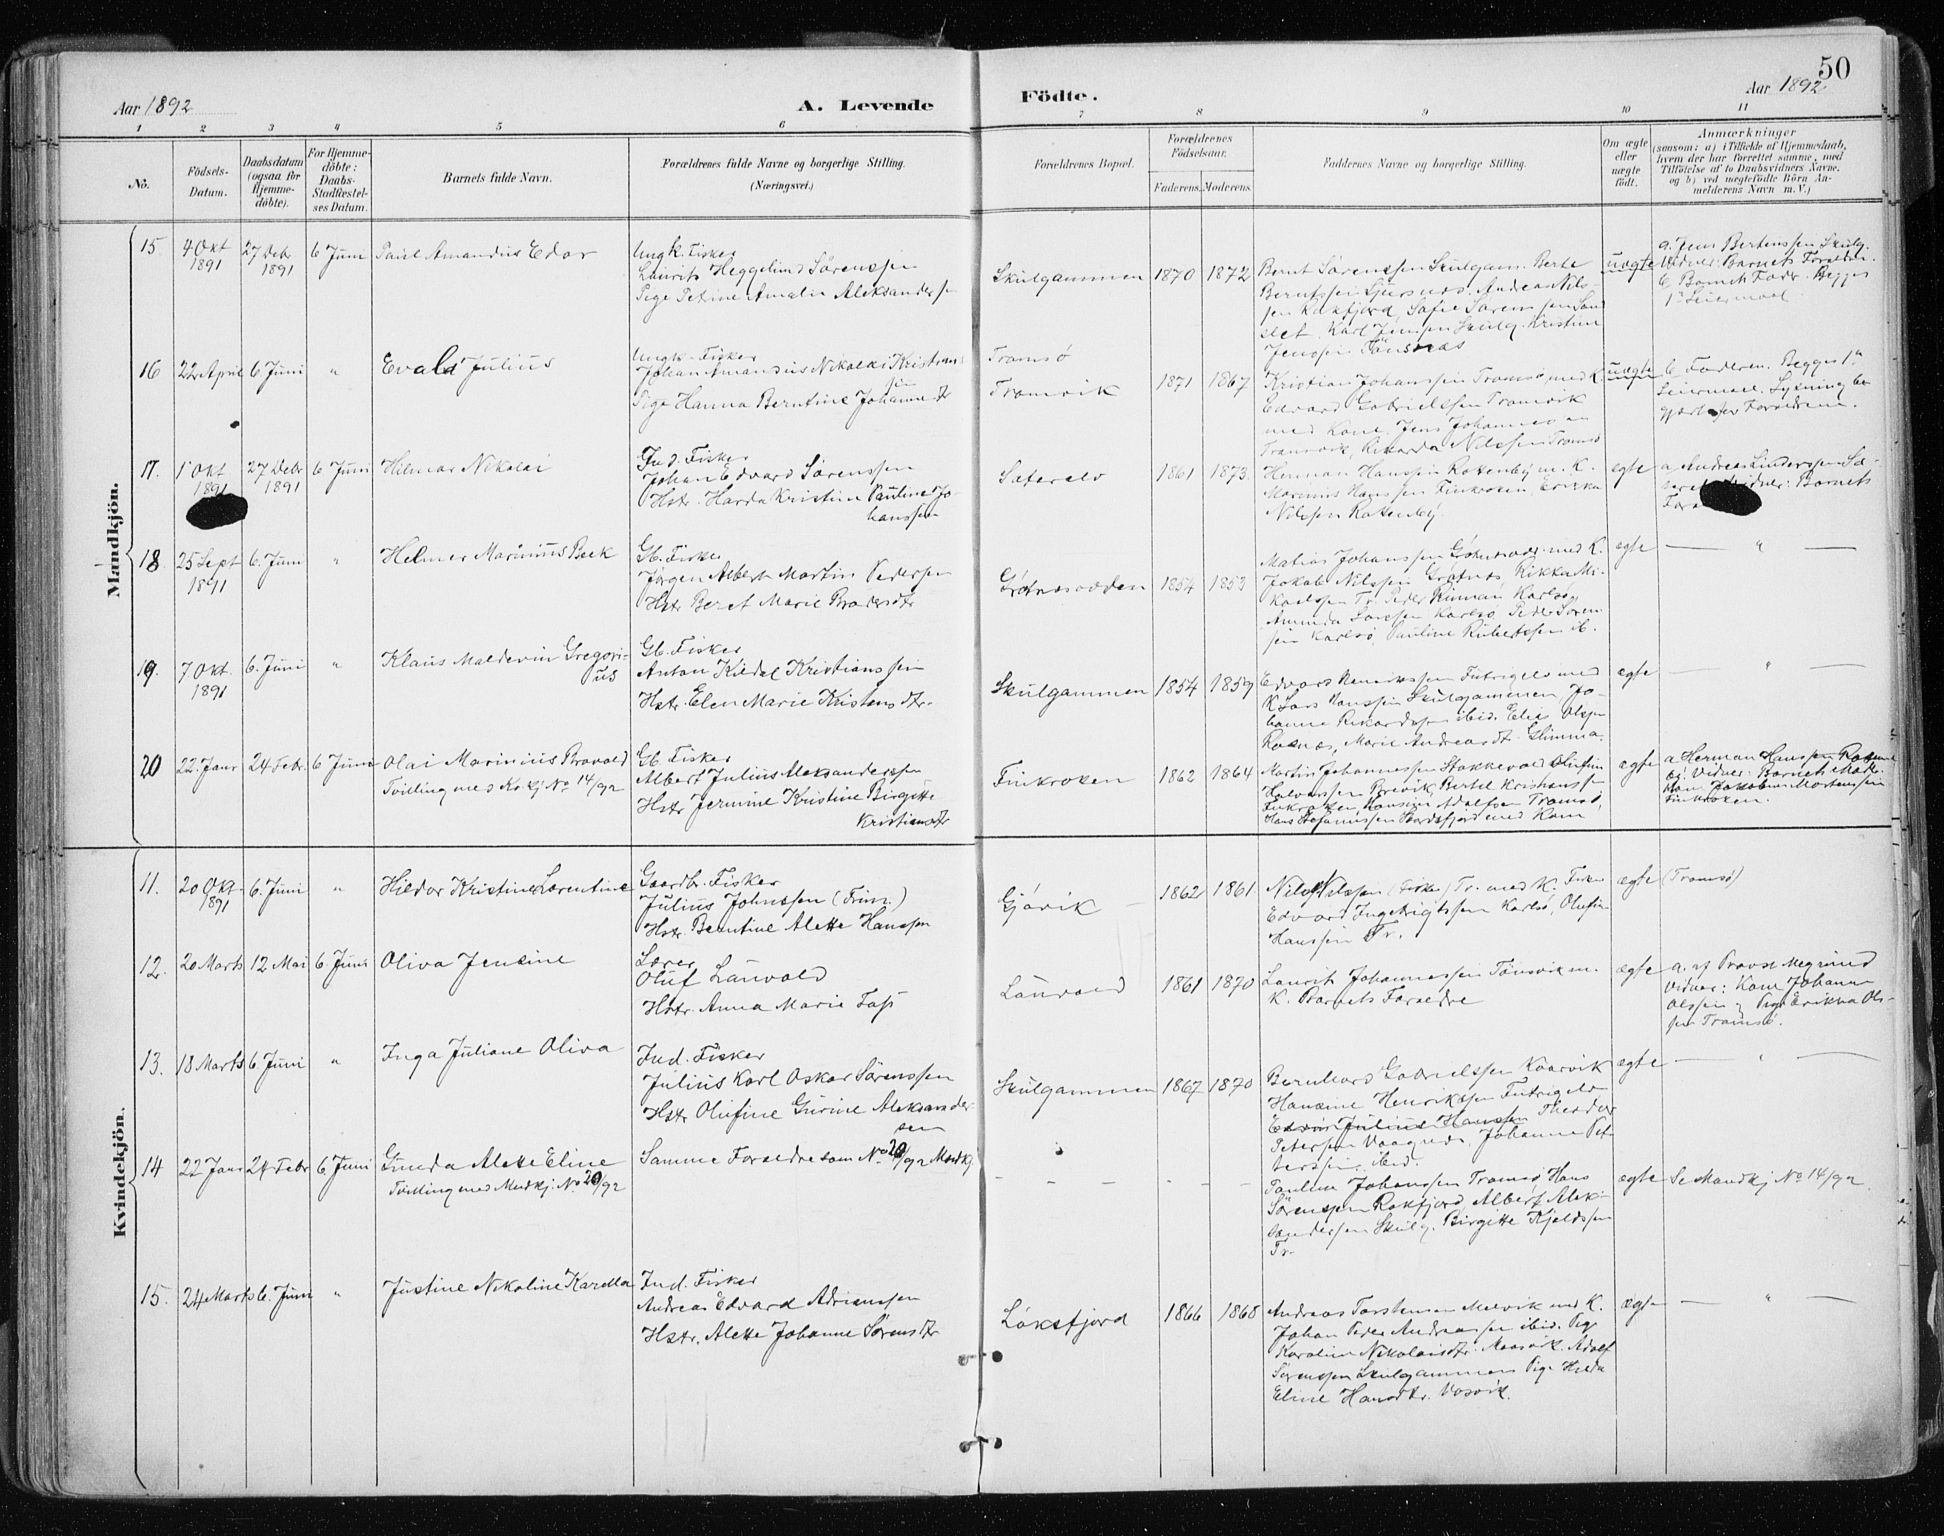 50
Aar 1892
A. Levende
Födte.
Aar 1892
1 2 3 4 5 6 7 8 9 10 11
No.
Födsels-
Datum.
Daabsdatum
(ogsaa for
Hjemme-
döbte).
For Hjemme-
döbte:
Daabs-
Stadfæstel-
ses Datum.
Barnets fulde Navn.
Forældrenes fulde Navne og borgerlige Stilling.
(Næringsvei.)
Forældrenes Bopæl.
Forældrenes
Födselsaar.
Faderens. Moderens.
Faddernes Navne og borgerlige Stilling.
Om ægte
eller
uægte
födt.
Anmærkninger
(saasom: a) i Tilfælde af Hjemmedaab,
hvem der har forrettet samme, med
Tilföielse af to Daabsvidners Navne,
og b) ved uægtefödte Börn An-
melderens Navn m. V.)
Mandkjön.
15 4 Okt 1891 27 Debr 1891 6 Juni Paul Amandus Edor
Ungk. Fisker
Laurits Heggelund Sørenssen
Pige Petine Amalie Aleksanders
Skulgammen 1870 1872
Bernt Sørenssen Skulgam. Berte
Berntssen Sjursnæs. Andreas Nils-
sen
Karl Jenssen Skulg. Kristine
Jenssen Tønsnæs
uægte
a. Jens Berteussen Skulg.
Vidner: Barnets Forældre.
b Barnets Fader. Begges
1ste Leiermaal
16 22 April 6 Juni " Evald Julius
Ungk. Fisker
Johan Amandus Nikolai Kristians
sen
Pige Hanna Berntine Johannedtr
Tromsø
Tromvik 1871 1867
Kristian Johanssen Tromsø med K.
Edvard Gabrielssen Tromvik
med Kone. Jens Johannes
Tromvik, Rikarda Nilssen Tromsø
uægte
b Faderen. Begges 1ste
Leiermaal. Lysning be-
gjært af Forældrene.
17. 1 Okt 1891 27 Debr 1891 6 Juni Hilmar Nikolai
Ind. Fisker
Johan Edvard Sørenssen
Hstr. Harda Kristine Pauline Jo-
hanssen
Sæterelv 1861 1873
Herman Hanssen Rottenbý m. K.
Marinus Hanssen Finkroken Erikka
Nilssen Rottenbý.
ægte
a. Andreas Linderssen Sæ-
Vidner: Barnets
18 25 Sept 1891 6. Juni " Helmer Marinius Beck
Gb. Fisker
Jørgen Albert Martin Pedersen
Hstr. Beret Marie Pedersdtr
Grøtnæsodden 1854 1853
Matias Johanssen Grøtnæsodd. med K.
Jakob Nilssen Grøtnæs, Rikka Mi-
kaelssen Tr. Peder Riiman Karlsø,
Amunda Larssen Karlsø Peder Søren-
sen Karlsø Pauline Rubertssen ib.
ægte — " —
19. 7 Okt. 1891 6. Juni " Klaus Maldevin Gregori-
us
Gb. Fisker
Anton Kildal Kristianssen
Hstr. Elen Marie Kristensdtr.
Skulgammen 1854 1859
Edvard Henrikssen Futrigelv med
K. Lars Hanssen Skulgammen, Jo-
hanne Rikardssen ibid. Elia Olsen
Roknæs, Marie Andreasdtr. Glimma
ægte — " —
20 22. Janr 24 Febr. 6 Juni Olai Marinius Bravold
Tvilling med Kvkj No 14/92
Gb. Fisker
Albert Julius Aleksanderssen
Hstr. Jermine Kristine Birgitte
Kristiansdtr
Finkroken 1862 1864
Martin Johannessen Stakkevold Olufine
Halvorssen Breivik, Bertel Kristianssen
Finkroken, Hansine Adolfsen Tromsø,
Hans Stefanussen Skardsfjord med Kone
ægte
a Herman Hanssen Rotten-
bý Vidner: Barnets Mod.
Kone Jakobine Mortenssen
Finkroken.
Kvindekjön.
11. 20 Okt. 1891 6. Juni " Hildor Kristine Lorentine
Gaardbr. Fisker
Julius Johnssen (Trim.)
Hstr. Berntine Alette Hanssen
Gjøvik — 1862 1861
Nils Nilssen (Fisker) Tr. med K. Fisker
Edvard Ingebrigtssen Karlsø, Olufine
Hanssen Tr.
ægte (Tromsø)
12. 20 Marts 12 Mai 6. Juni Oliva Jensine
Lærer
Oluf Lauvold
Hstr. Anna Marie Fass
Lauvold 1861 1870
Laurits Johannessen Tønsvik m.
K. Barnets Forældre
ægte
a. af Provst Wegrund
Vidner: Kone Johanne
Olssen og Pige Erikka Ols-
sen Tromsø.
13. 18 Marts 6. Juni " Inga Juliane Oliva
Ind. Fisker
Julius Karl Oskar Sørenssen
Hstr. Olufine Gurine Aleksander
sen
Skulgammen 1867 1870
Bernhard Gabrielssen Kaarvik
Hansine Henrikssen Futrigelv
Edvin Julius Hanssen Theodor
Peterssen Vaagnes. Johanne Pet-
terssen, ibid.
ægte — " —
14 22 Janr 24 Febr 6 Juni Gunda Alette Eline
Tvilling med Mndkj. No 20/92
Samme Forældre som No 20/92 Mandkj.
- - - - -
Pauline Johanssen Tromsø Hans
Sørenssen Rakfjord Albert Alek-
sanderssen Skulg. Birgitte Kjeldssen
Tr.
ægte Se Mandkj No 14/92
15. 24 Marts 6. Juni " Justine Nikoline Karella
Ind. Fisker
Andreas Edvard Adrianssen
Hstr. Alette Johanne Sørensdtr
Løksfjord 1866 1868
Andreas Torstensen Mjelvik med K.
Johan Peder Andreassen ibid. Pige
Karoline Nikolaisdtr. Maasvik. Adolf
Sørenssen Skulgammen Pige Hilda
Eline Hansdtr. Vasvik.
ægte — " —